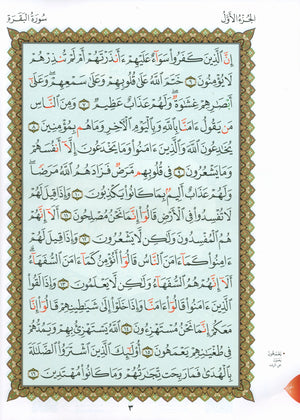 الجزء الأول
سورة البقرة
إِنَّ ٱلَّذِينَ كَفَرُوا۟ سَوَآءٌ عَلَيْهِمْ ءَأَنذَرْتَهُمْ أَمْ لَمْ تُنذِرْهُمْ
لَا يُؤْمِنُونَ ٦ خَتَمَ ٱللَّهُ عَلَىٰ قُلُوبِهِمْ وَعَلَىٰ سَمْعِهِمْ ۖ وَعَلَىٰٓ
أَبْصَٰرِهِمْ غِشَٰوَةٌ ۖ وَلَهُمْ عَذَابٌ عَظِيمٌ ٧ وَمِنَ ٱلنَّاسِ
مَن يَقُولُ ءَامَنَّا بِٱللَّهِ وَبِٱلْيَوْمِ ٱلْءَاخِرِ وَمَا هُم بِمُؤْمِنِينَ ٨
يُخَٰدِعُونَ ٱللَّهَ وَٱلَّذِينَ ءَامَنُوا۟ وَمَا يَخْدَعُونَ إِلَّآ أَنفُسَهُمْ
وَمَا يَشْعُرُونَ ٩ فِى قُلُوبِهِم مَّرَضٌ فَزَادَهُمُ ٱللَّهُ مَرَضًا ۖ
وَلَهُمْ عَذَابٌ أَلِيمٌۢ بِمَا كَانُوا۟ يَكْذِبُونَ ١٠ وَإِذَا قِيلَ لَهُمْ
لَا تُفْسِدُوا۟ فِى ٱلْأَرْضِ قَالُوٓا۟ إِنَّمَا نَحْنُ مُصْلِحُونَ ١١ أَلَآ إِنَّهُمْ
هُمُ ٱلْمُفْسِدُونَ وَلَٰكِن لَّا يَشْعُرُونَ ١٢ وَإِذَا قِيلَ لَهُمْ
ءَامِنُوا۟ كَمَآ ءَامَنَ ٱلنَّاسُ قَالُوٓا۟ أَنُؤْمِنُ كَمَآ ءَامَنَ ٱلسُّفَهَآءُ ۗ
أَلَآ إِنَّهُمْ هُمُ ٱلسُّفَهَآءُ وَلَٰكِن لَّا يَعْلَمُونَ ١٣ وَإِذَا لَقُوا۟
ٱلَّذِينَ ءَامَنُوا۟ قَالُوٓا۟ ءَامَنَّا وَإِذَا خَلَوْا۟ إِلَىٰ شَيَٰطِينِهِمْ قَالُوٓا۟ إِنَّا
مَعَكُمْ إِنَّمَا نَحْنُ مُسْتَهْزِءُونَ ١٤ ٱللَّهُ يَسْتَهْزِئُ بِهِمْ وَيَمُدُّهُمْ
فِى طُغْيَٰنِهِمْ يَعْمَهُونَ ١٥ أُو۟لَٰٓئِكَ ٱلَّذِينَ ٱشْتَرَوُا۟ ٱلضَّلَٰلَةَ
بِٱلْهُدَىٰ فَمَا رَبِحَت تِّجَٰرَتُهُمْ وَمَا كَانُوا۟ مُهْتَدِينَ ١٦
٣